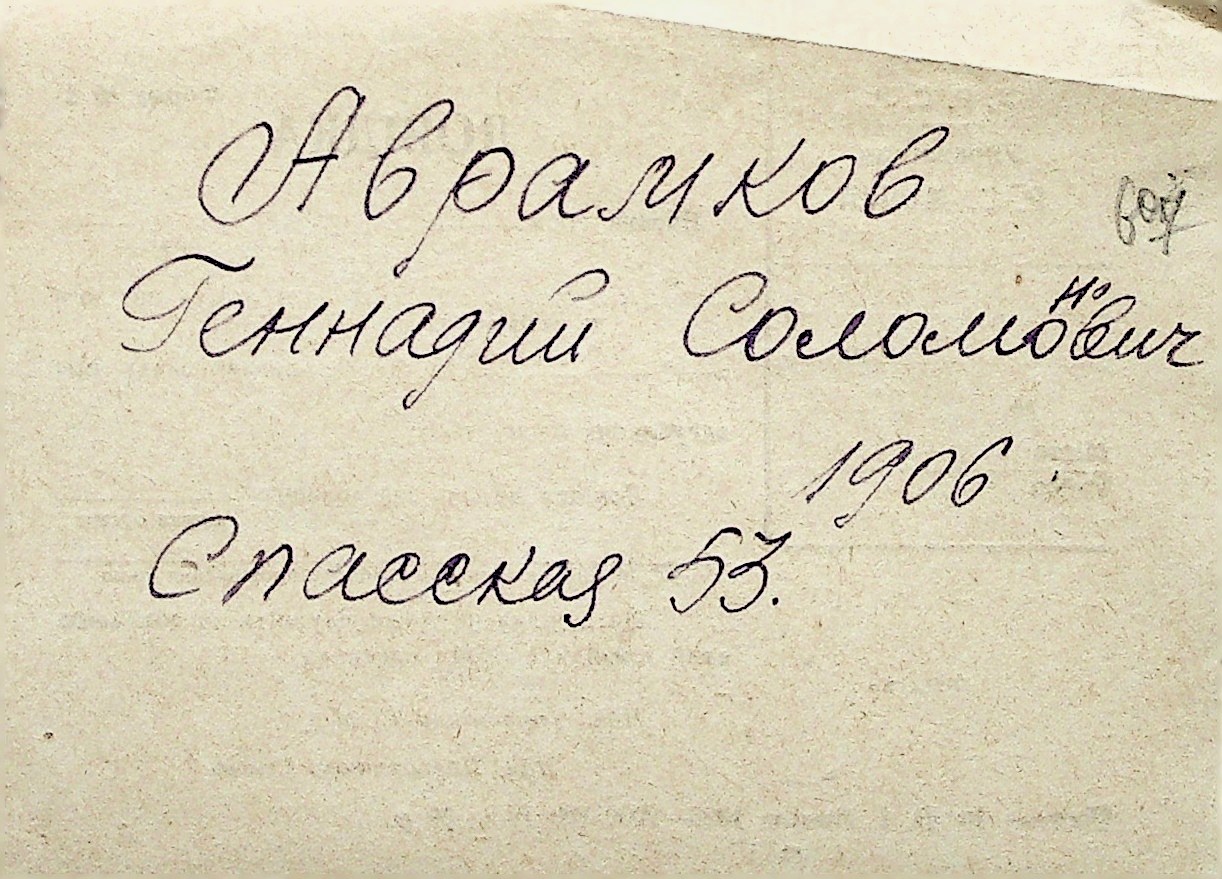 Аврамков
Геннадий Соломонович
1906
Спасская 53.